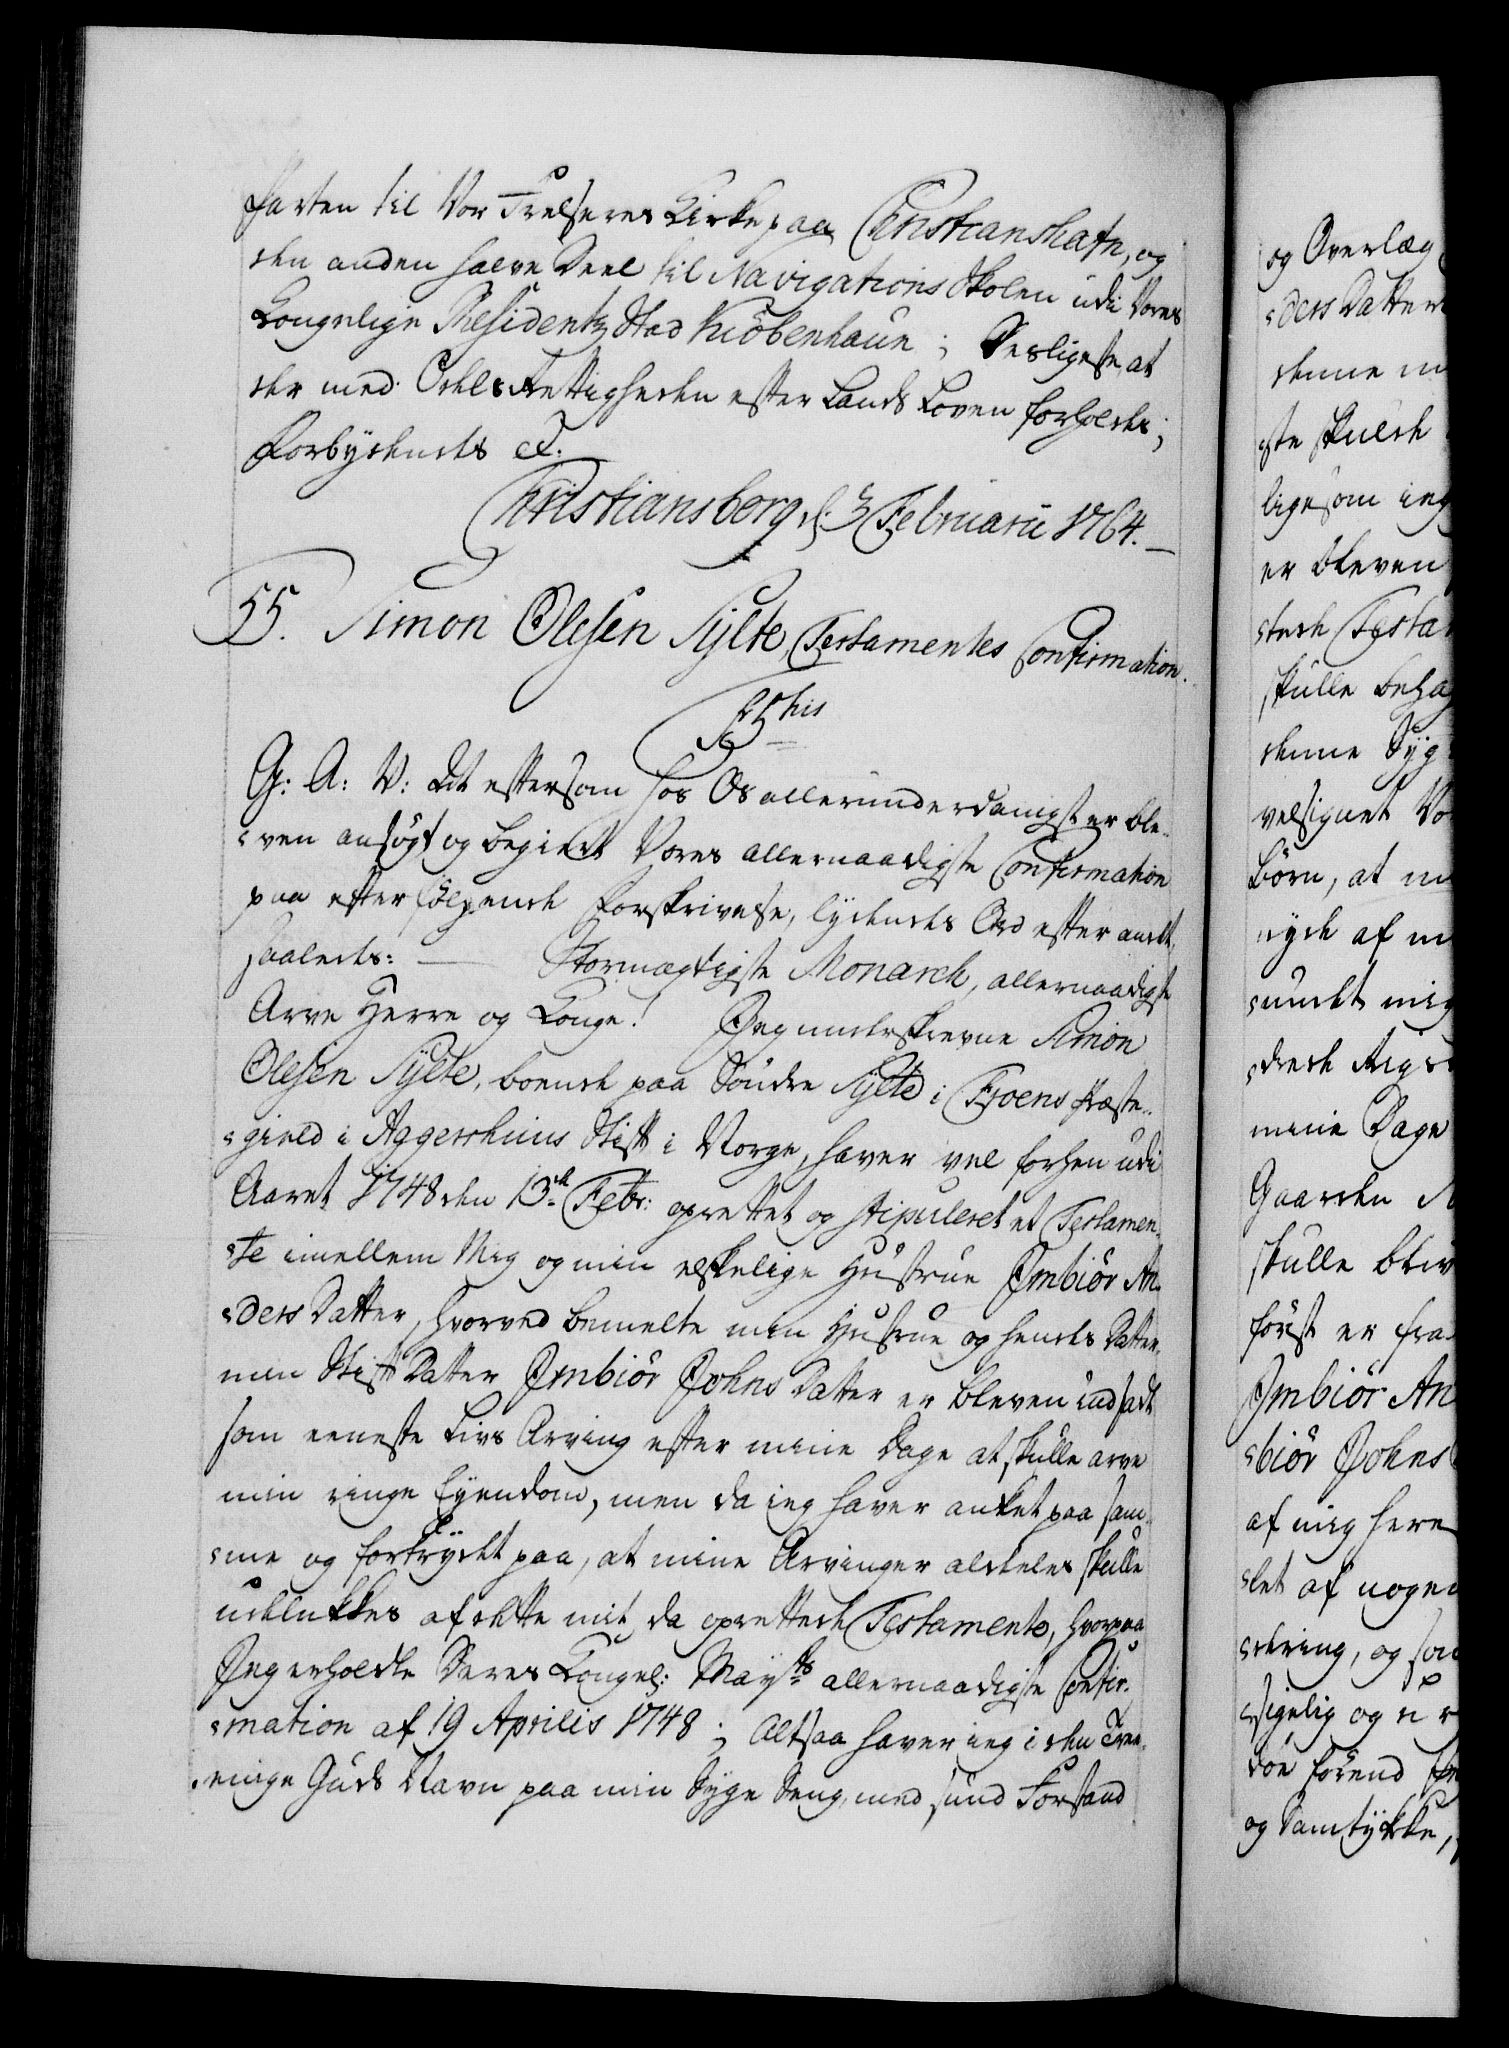 parten til Vor Frelseres Kirke paa Christianshafn, og
den anden halve Deel til Navigations Skolen udi Vores
Kongelige Residentz Stad Kiöbenhaun; Desligeste at
der med Odels Rettigheden efter Lands Loven forholdes;
Forbydendes &c.
Christiansborg d. 3 Februarii 1764.
55. Simon Olesen Sylte, Testamentes Confirmation.
G: A: V: At eftersom hos Os allerunderdanigst er ble-
-ven ansögt og begiert Vores allernaadigste Confirmation
paa efterfölgende Forskrivelse, lydendes Ord efter andet
saaledes: — Stormægtigste Monarch, allernaadigste
Arve Herre og Konge! Jeg underskrevne Simon
Olesen Sylte, boende paa Söndre Sylte i Froens Præste-
-gield i Aggershuus Stift i Norge, haver vel forhen udi
Aaret 1748 den 13de Febr: oprettet og stipuleret et Testamen-
-te imellem Mig og min elskelige Hustrue Jmbiör An-
-dersDatter, hvorved bemelte min Hustrue og hendes Datter,
min StifDatter Jmbiör JohnsDatter er bleven indsadt
som eeneste Livs Arving efter mine Dage at skulle arve
min ringe Eyendom, men da ieg haver anket paa sam-
-me og fortrydt paa, at mine Arvinger aldeles skulle
udelukkes af dette mit da oprettede Testamente, hvorpaa
Jeg erholdte Deres Kongel: Mayts allernaadigste Confir-
-mation af 19 Aprilis 1748; Altsaa haver ieg i den Tree-
-enige Guds Navn paa min Syge Seng, med sund Forstand
og Overlæg
-ders Datter
denne m
ste skulde
ligesom ieg
er bleven
-tede Testa
skulle beha
denne Syg
velsignet Vo
Börn, at m
nyde af m
-undt mig
mine Dage
Gaarden
skulle bliv
först er fra
Jmbiör An
-biör Johns
af mig her
-let af nogen
-dring, og saa
doe förend
og Samtykke,